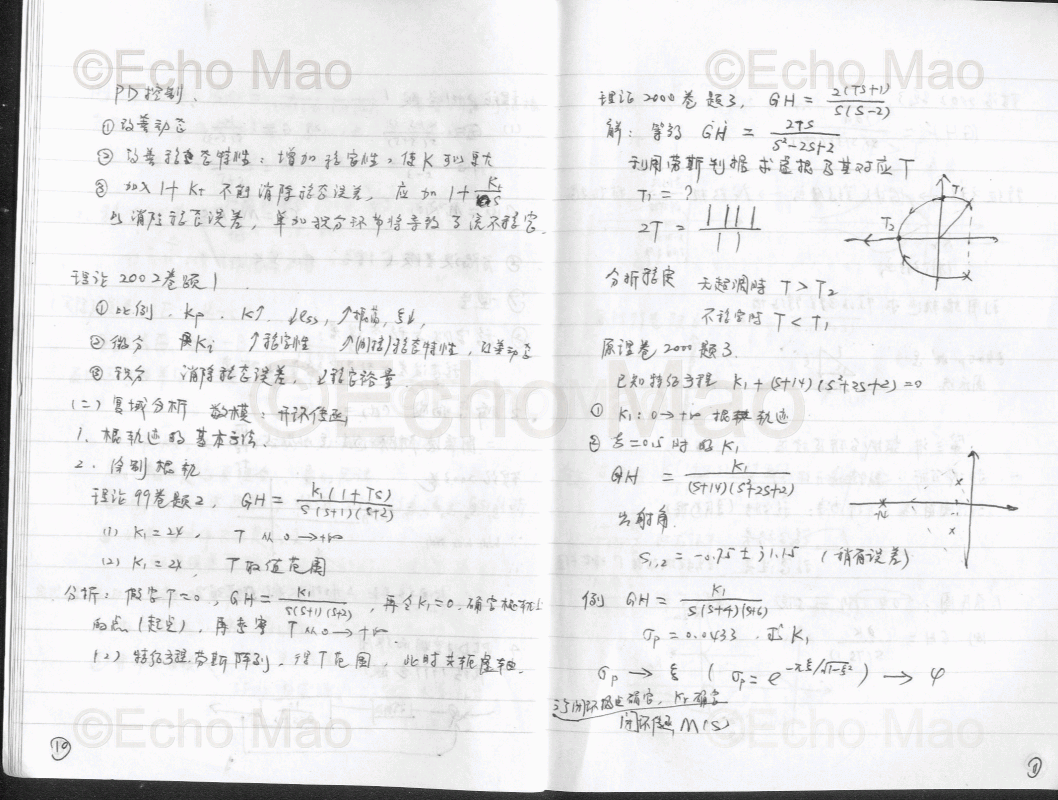 ©Echo Mao
PD控制、
①改善动态
②改善稳态特性：增加稳定性，使K可以更大
③加入1+Kτ不能消除稳态误差，应加1+ Kτ/s
以消除稳态误差，单加积分环节将导致系统不稳定.
理论2002卷题1
①比例. Kp. K↑ ↓ess, ↑振荡, ξ↓,
②微分 Ki ↑稳定性 ↑(间接)稳态特性, 改善动态
③积分 消除稳态误差, ↓稳定裕量.
(二) 复域分析 数模：开环传函
1. 根轨迹的基本方法、
2. 绘制根轨
理论99卷题2, GH = K₁(1+Ts)/s(s+1)(s+2)
(1) K₁=24, T从0→+∞
(2) K₁=24, T取值范围
分析：假定T=0, GH = K₁/s(s+1)(s+2), 再令K₁=0.确定根轨上
的点(起点), 再考虑 T从0→+∞.
(2) 特征方程.劳斯阵列. 得T范围, 此时共轭虚轴.
©Echo Mao
⑩
©Echo Mao
理论2000卷题3, GH = 2(Ts+1)/s(s-2)
解：等效 GH = 2Ts/s²-2s+2
利用劳斯判据求虚根及其对应T
T₁ = ?
2T =
T₁
T₂
分析稳定 无超调时 T>T₂
不稳定时 T<T₁
原理卷2000题3.
已知特征方程 K₁+(s+14)(s²+2s+2)=0
① K₁:0→+∞ 根轨迹
② ξ=0.5时的K₁
GH = K₁/(s+14)(s²+2s+2)
-14
出射角.
S₁,₂ = -0.75 ± j1.15 (稍有误差)
例 GH = K₁/s(s+4)(s+6)
σp = 0.0433. 求K₁
σp → ξ (σp = e^(-πξ/√1-ξ²)) → φ
闭环极点确定, Kr确定
闭环函 M(s)
©Echo Mao
©Echo Mao